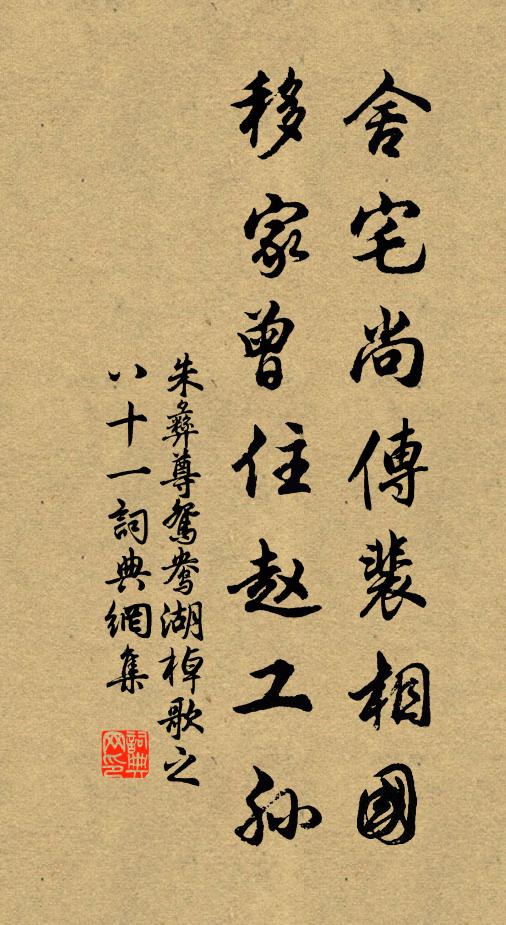 舍宅尚傳裴相國
移家曾住趙工孫
朱彝尊鴛鴦湖棹歌之
八十一詞典網集
詞典網印